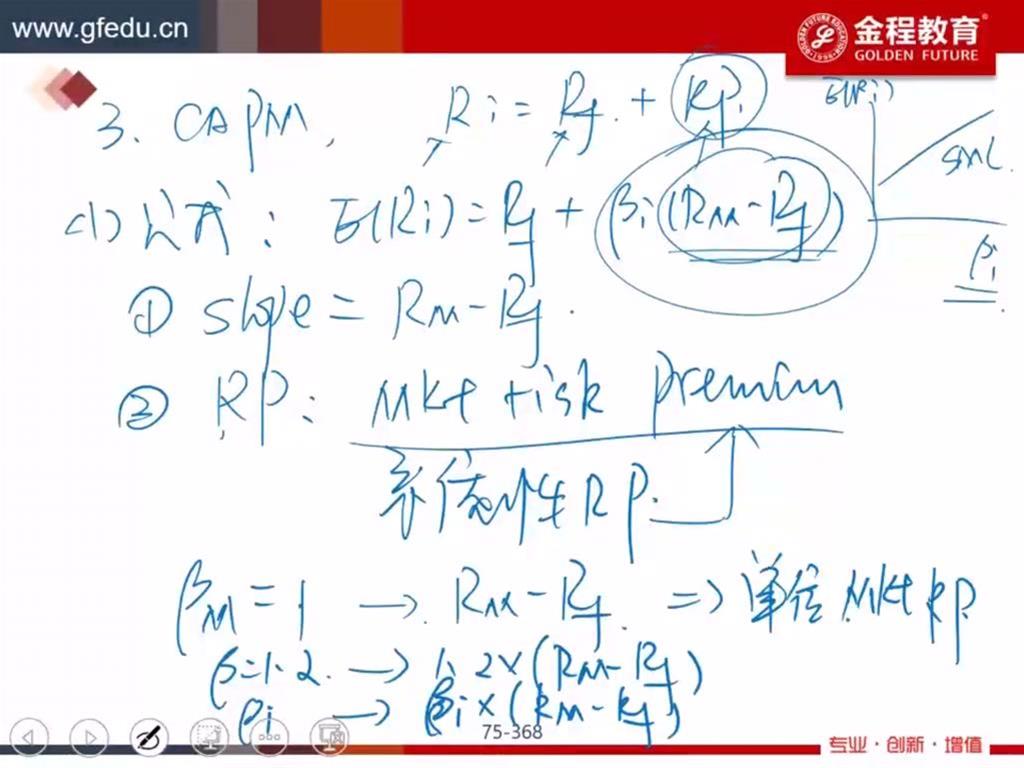 www.gfedu.cn
金程教育
GOLDEN FUTURE
3. CAPM, Ri = Rf + RPi
E(Ri)
SML
(1) 公式: E(Ri) = Rf + βi(RM-Rf)
βi
① slope = RM-Rf.
② RP: Mkt risk premium
系统性RP.
βM = 1 → RM-Rf. => 单位Mkt RP
β=1.2. → 1.2×(RM-Rf)
βi → βi×(RM-Rf)
75-368
专业·创新·增值